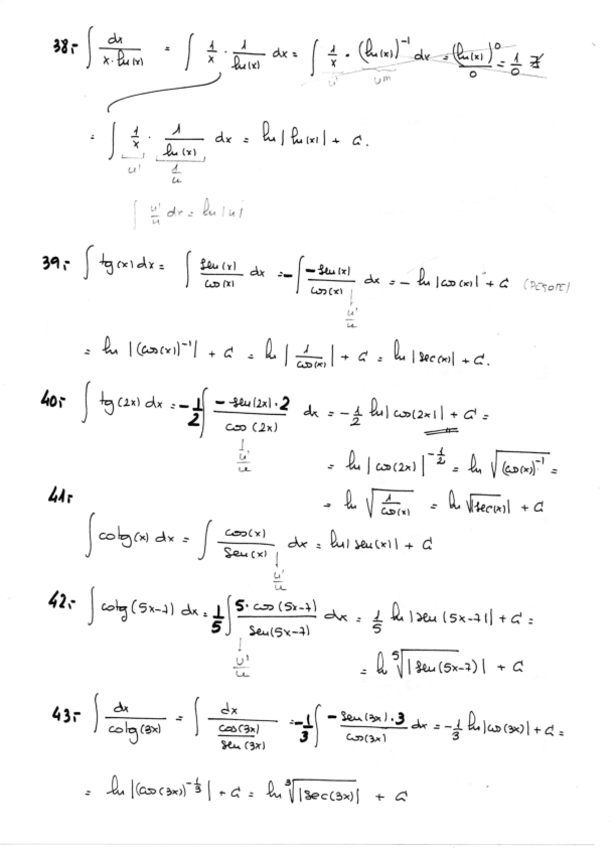 38.- ∫ dx / (x·ln(x)) = ∫ 1/x · 1/ln(x) dx = ∫ 1/x · (ln(x))^-1 dx = (ln(x))^0 / 0 = 1/0 ∄
u' u^m
= ∫ 1/x · 1/ln(x) dx = ln|ln(x)| + C.
u' 1/u
∫ u'/u dx = ln|u|
39.- ∫ tg(x) dx = ∫ sen(x)/cos(x) dx = -∫ -sen(x)/cos(x) dx = - ln|cos(x)| + C
u'/u
= ln|(cos(x))^-1| + C = ln|1/cos(x)| + C = ln|sec(x)| + C.
40.- ∫ tg(2x) dx = -1/2 ∫ -sen(2x)·2 / cos(2x) dx = -1/2 ln|cos(2x)| + C =
u'/u
= ln|cos(2x)|^-1/2 = ln √((cos(x))^-1) =
= ln √(1/cos(x)) = ln √|sec(x)| + C
41.-
∫ cotg(x) dx = ∫ cos(x)/sen(x) dx = ln|sen(x)| + C
u'/u
42.- ∫ cotg(5x-7) dx = 1/5 ∫ 5·cos(5x-7)/sen(5x-7) dx = 1/5 ln|sen(5x-7)| + C =
u'/u
= ln ⁵√|sen(5x-7)| + C
43.- ∫ dx/cotg(3x) = ∫ dx / (cos(3x)/sen(3x)) = -1/3 ∫ -sen(3x)·3 / cos(3x) dx = -1/3 ln|cos(3x)| + C =
= ln|(cos(3x))^-1/3| + C = ln ³√|sec(3x)| + C